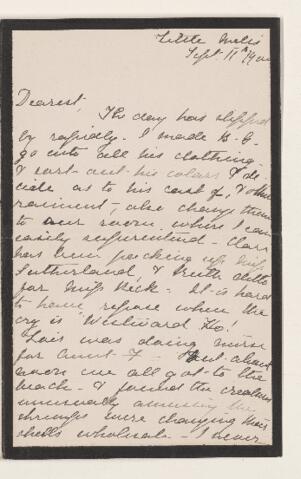 Little Metis
Sept. 11th 19
Dearest,
The day has slipped
by rapidly - I made G.G.
go into all his clothing
& sort out his colours & de
cide as to his cast off, & other
raiment, - also change them
to our room where I can
easily superintend - Clara
has been packing up Miss
Sutherland, & Ruth ditto
for Miss Dick. It is hard
to have repose when the
cry is "Westward Ho!"
Lois was doing nurse
for Aunt F - But about
noon we all got to the
beach - & found the creatures
unusually amusing the
shrimps were changing their
shells wholesale - I never